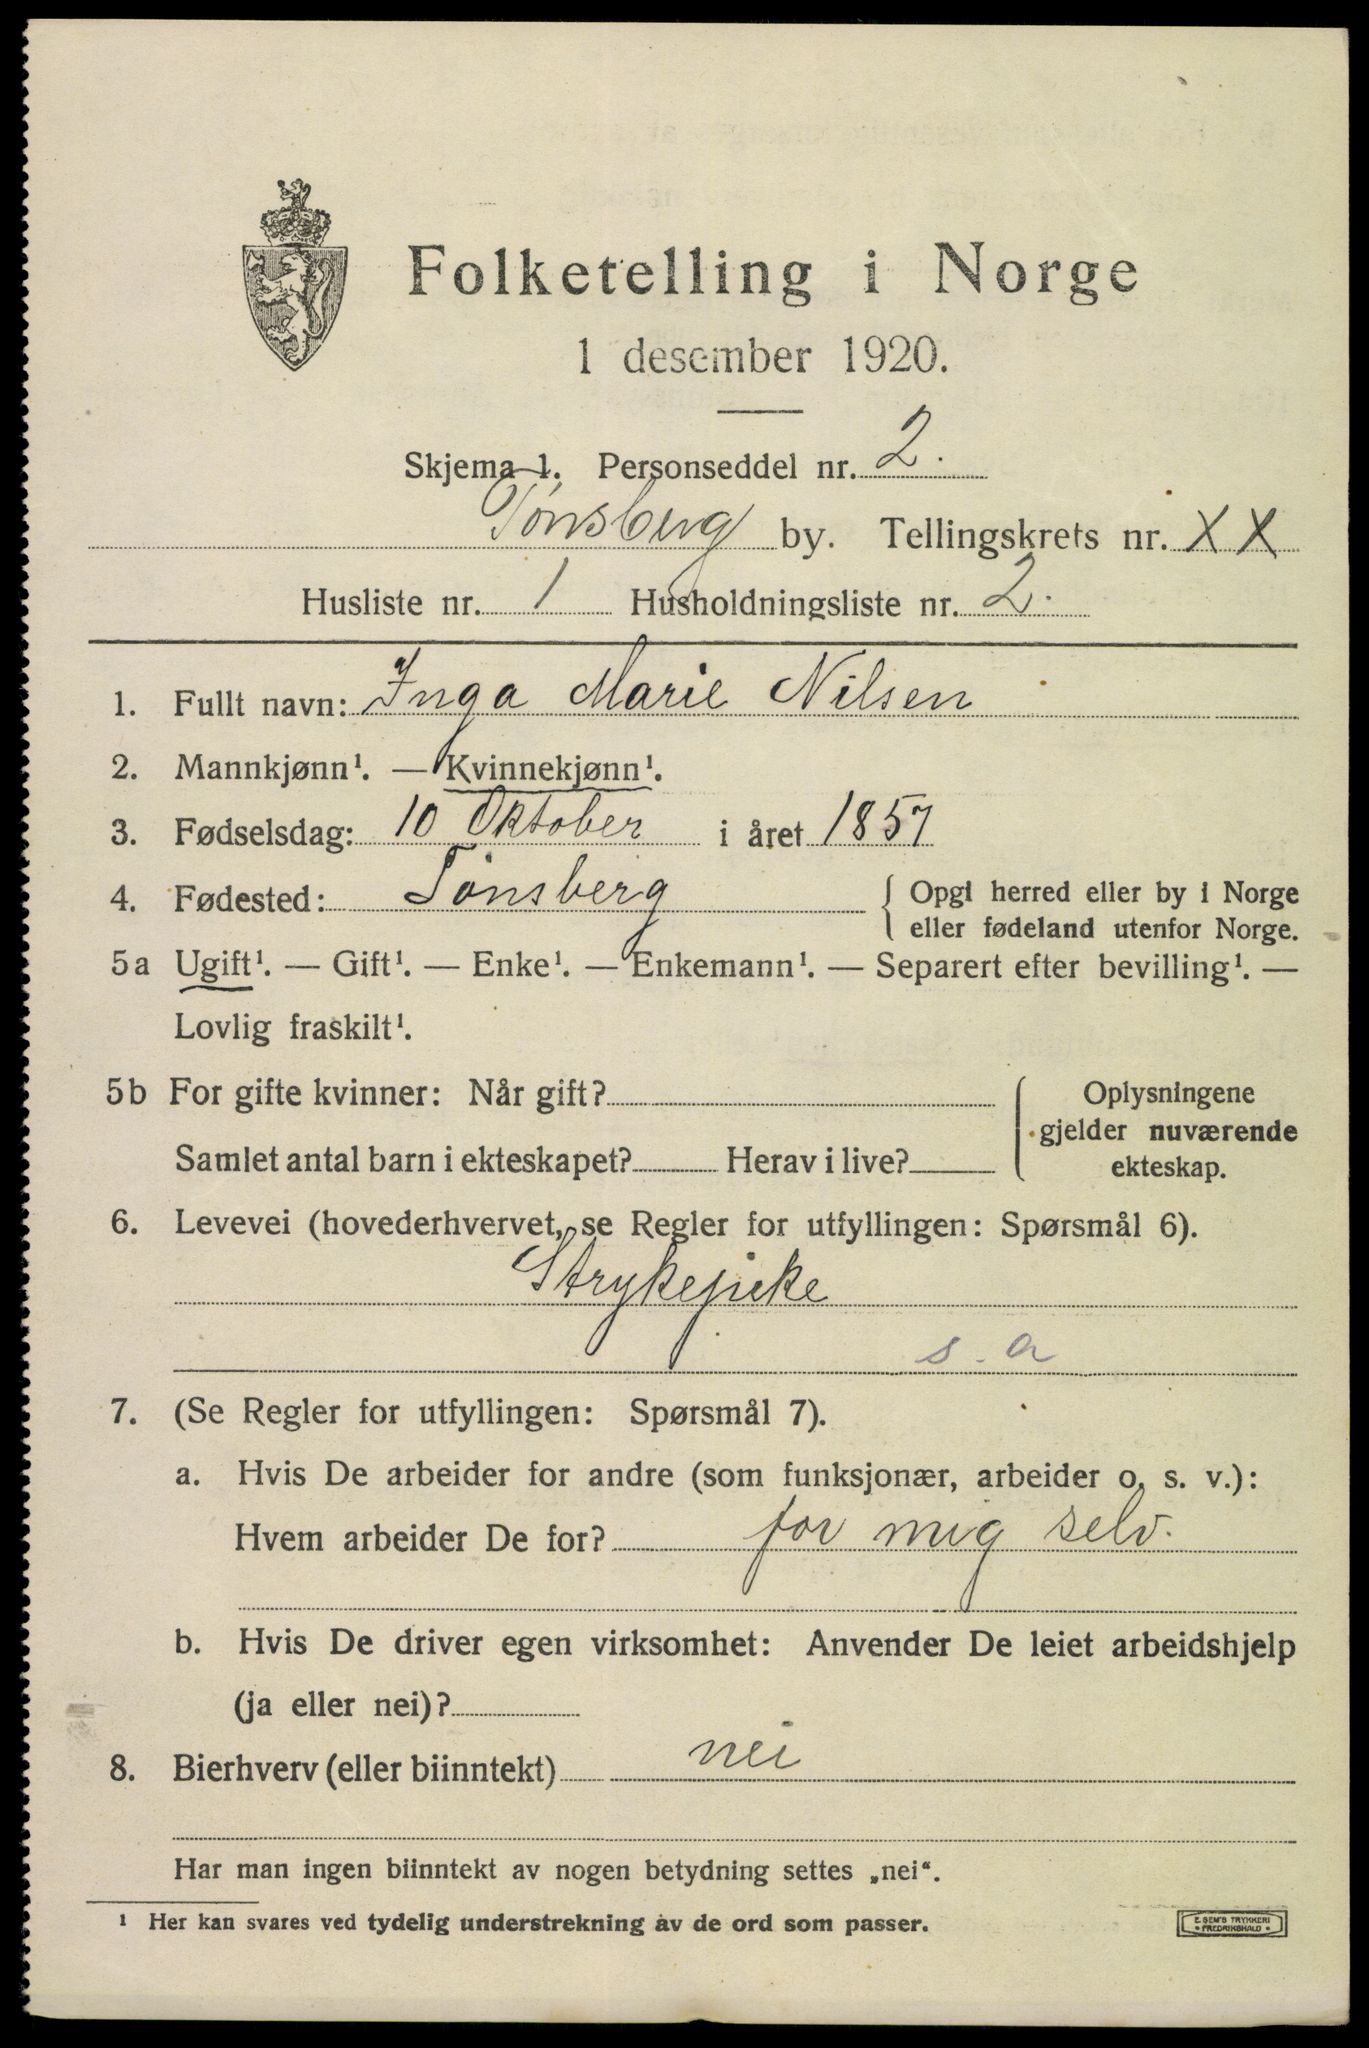 Folketelling i Norge
1 desember 1920.
Skjema 1. Personseddel nr. 2.
Tønsberg by. Tellingskrets nr. XX
Husliste nr. 1 Husholdningsliste nr. 2.
1. Fullt navn: Inga Marie Nilsen
2. Mannkjønn¹. — Kvinnekjønn¹.
3. Fødselsdag: 10 Oktober i året 1857
4. Fødested: Tønsberg { Opgi herred eller by i Norge
eller fødeland utenfor Norge.
5a Ugift¹. — Gift¹. — Enke¹. — Enkemann¹. — Separert efter bevilling¹. —
Lovlig fraskilt¹.
5b For gifte kvinner: Når gift? Oplysningene
gjelder nuværende
Samlet antal barn i ekteskapet? Herav i live? ekteskap.
6. Levevei (hovederhvervet, se Regler for utfyllingen: Spørsmål 6).
Strykepike
s. a
7. (Se Regler for utfyllingen: Spørsmål 7).
a. Hvis De arbeider for andre (som funksjonær, arbeider o. s. v.):
Hvem arbeider De for? for mig selv.
b. Hvis De driver egen virksomhet: Anvender De leiet arbeidshjelp
(ja eller nei)?
8. Bierhverv (eller biinntekt) nei
Har man ingen biinntekt av nogen betydning settes „nei“.
¹ Her kan svares ved tydelig understrekning av de ord som passer.
E. SEM'S TRYKKERI
• FREDRIKSHALD •